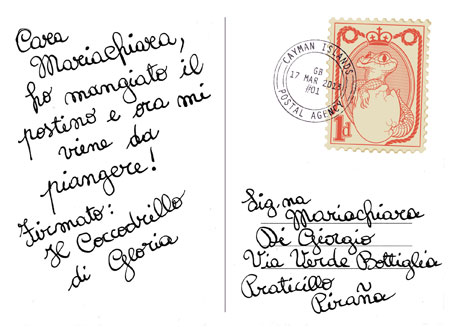 Cara
Mariachiara,
ho mangiato il
postino e ora mi
viene da
piangere!
Firmato:
Il Coccodrillo
di Gloria
CAYMAN ISLANDS
GB
17 MAR 2014
#01
POSTAL AGENCY
1d
Sig.na
Mariachiara
Di Giorgio
Via Verde Bottiglia
Praticillo
Piraña